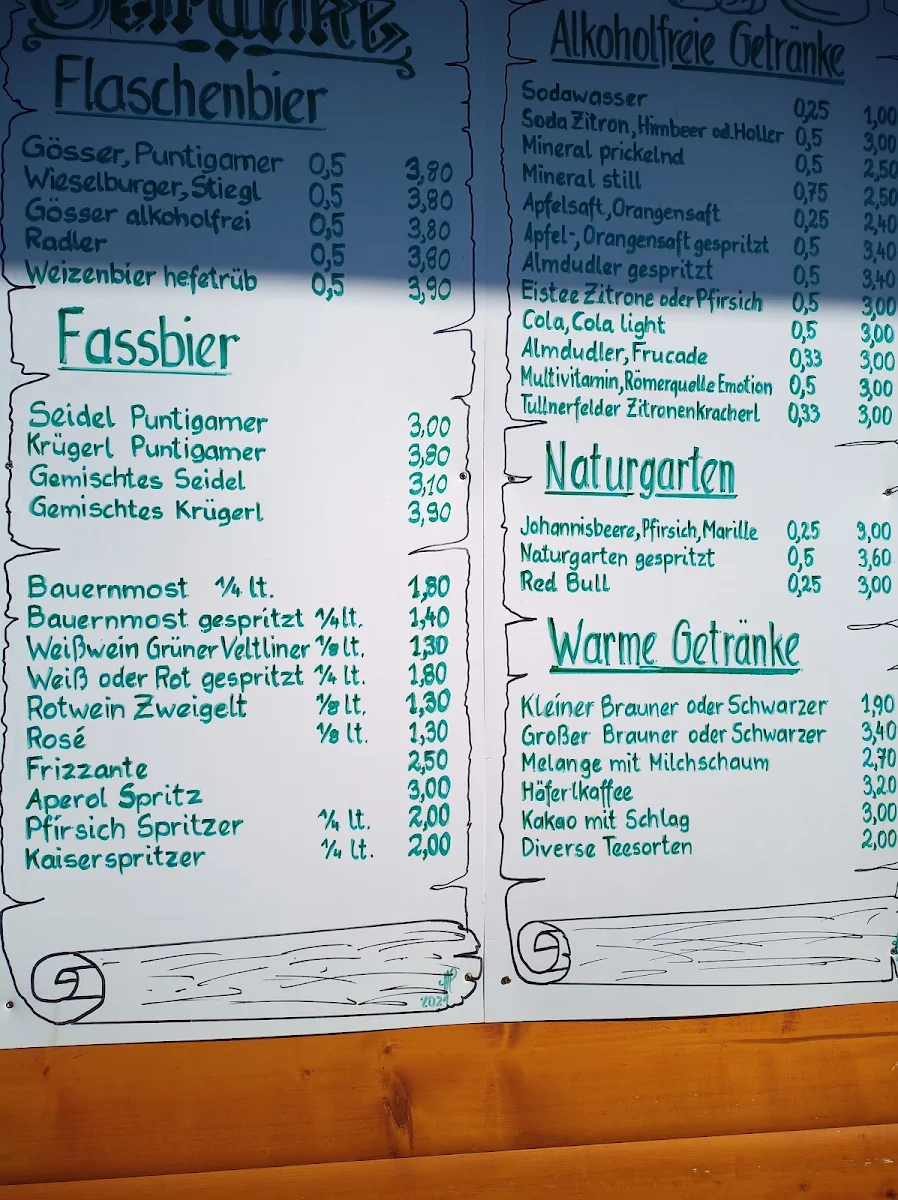 Getränke
Flaschenbier
Gösser, Puntigamer 0,5 3,80
Wieselburger, Stiegl 0,5 3,80
Gösser alkoholfrei 0,5 3,80
Radler 0,5 3,80
Weizenbier hefetrüb 0,5 3,90
Fassbier
Seidel Puntigamer 3,00
Krügerl Puntigamer 3,80
Gemischtes Seidel 3,10
Gemischtes Krügerl 3,90
Bauernmost 1/4 lt. 1,80
Bauernmost gespritzt 1/4 lt. 1,40
Weißwein Grüner Veltliner 1/8 lt. 1,30
Weiß oder Rot gespritzt 1/4 lt. 1,80
Rotwein Zweigelt 1/8 lt. 1,30
Rosé 1/8 lt. 1,30
Frizzante 2,50
Aperol Spritz 3,00
Pfirsich Spritzer 1/4 lt. 2,00
Kaiserspritzer 1/4 lt. 2,00
2021
Alkoholfreie Getränke
Sodawasser 0,25 1,00
Soda Zitron, Himbeer od. Holler 0,5 3,00
Mineral prickelnd 0,5 2,50
Mineral still 0,75 2,50
Apfelsaft, Orangensaft 0,25 2,40
Apfel-, Orangensaft gespritzt 0,5 3,40
Almdudler gespritzt 0,5 3,40
Eistee Zitrone oder Pfirsich 0,5 3,00
Cola, Cola light 0,5 3,00
Almdudler, Frucade 0,33 3,00
Multivitamin, Römerquelle Emotion 0,5 3,00
Tullnerfelder Zitronenkracherl 0,33 3,00
Naturgarten
Johannisbeere, Pfirsich, Marille 0,25 3,00
Naturgarten gespritzt 0,5 3,60
Red Bull 0,25 3,00
Warme Getränke
Kleiner Brauner oder Schwarzer 1,90
Großer Brauner oder Schwarzer 3,40
Melange mit Milchschaum 2,70
Häferlkaffee 3,20
Kakao mit Schlag 3,00
Diverse Teesorten 2,00